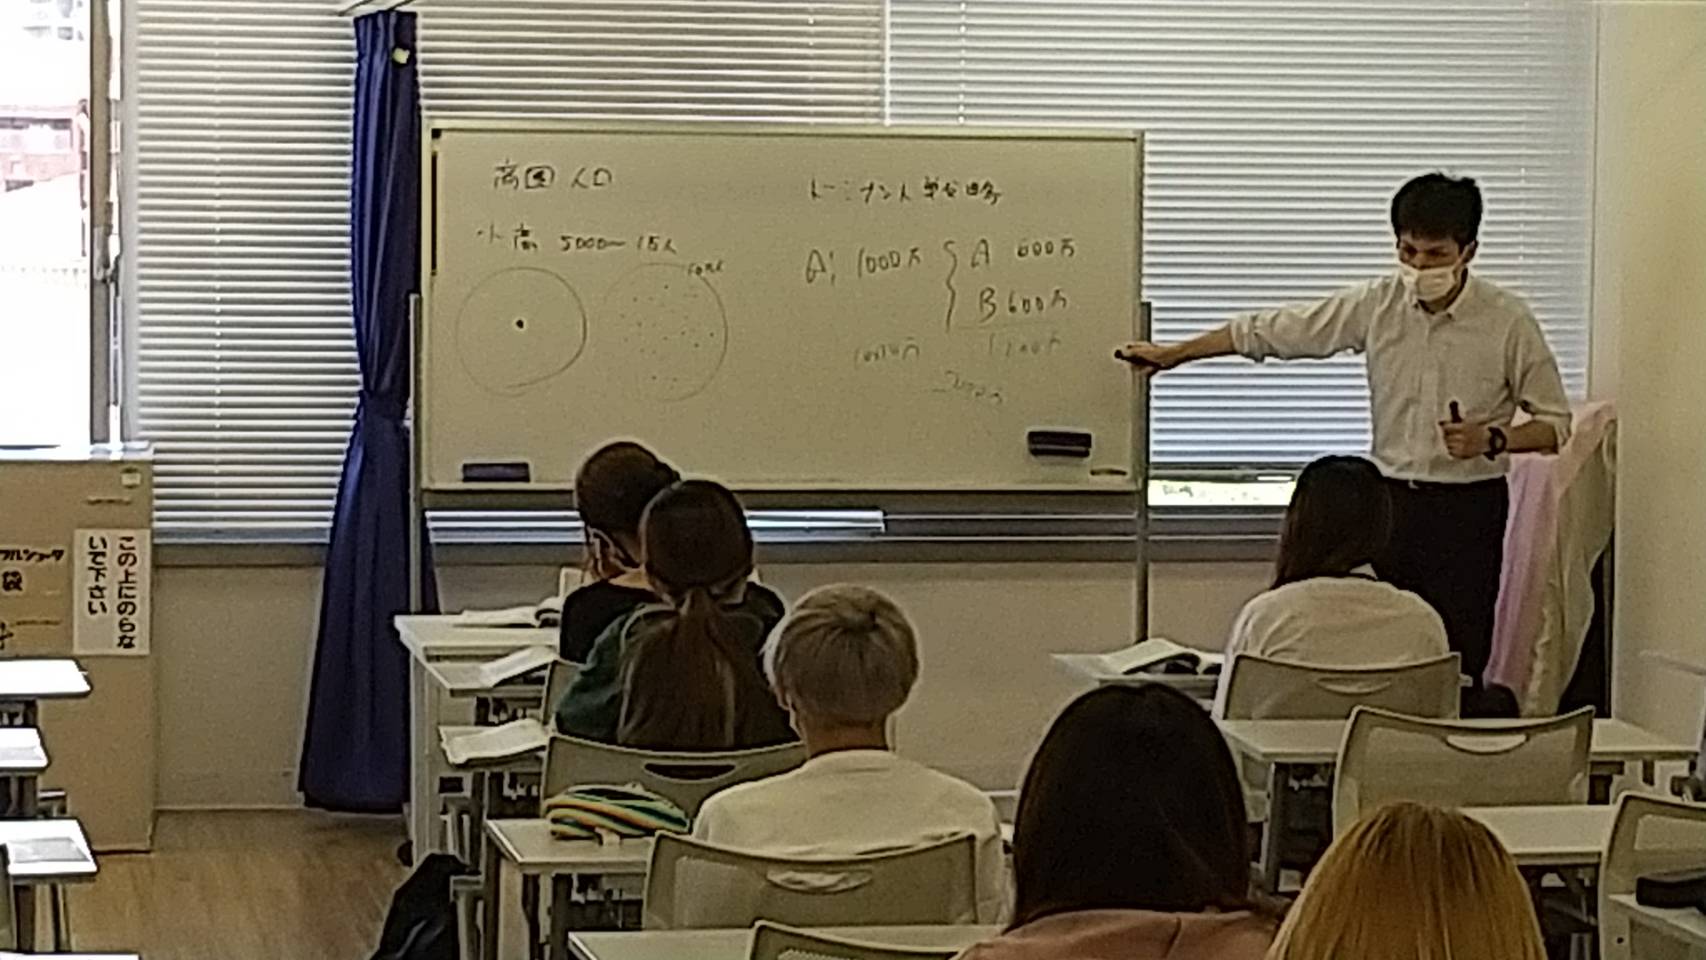 商圏人口
小商 5000〜1万人
ドミナント戦略
A; 1000万
A 600万
B 600万
1000万
1200万
この上にのらな
いで下さい
袋